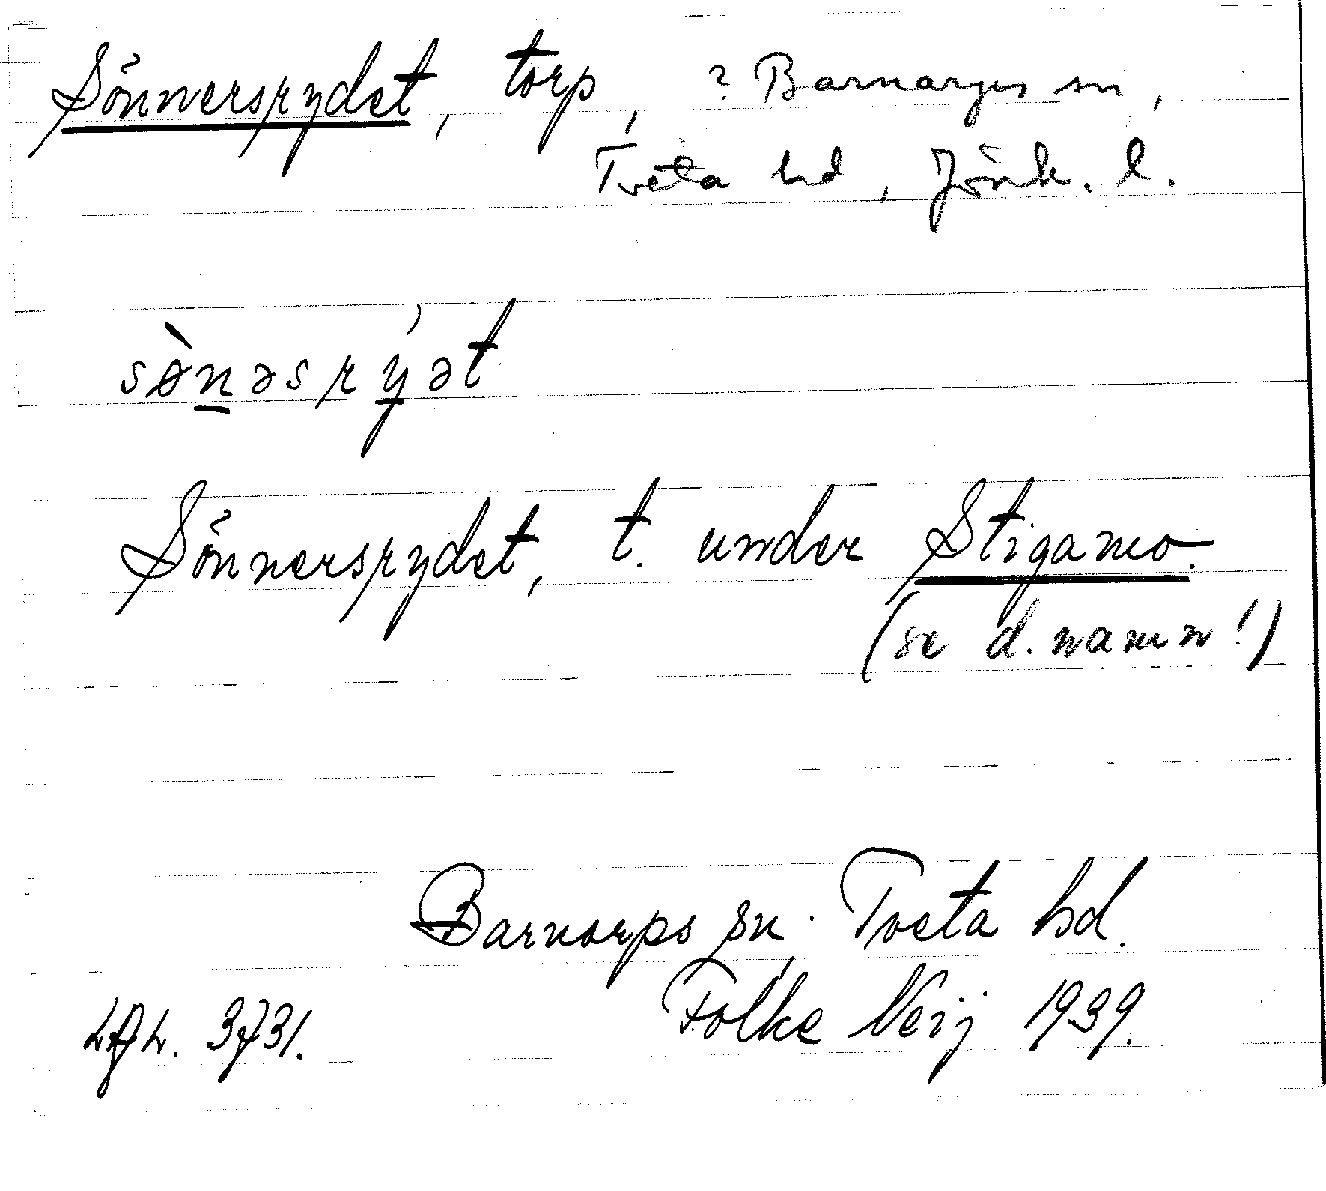 Sönnersrydet, torp, ? Barnarps sn,
Tveta hd, Jönk. l.
sø̀nəsrýət
Sönnersrydet, t. under Stigamo.
(se d. namn!)
Barnarps sn. Tveta hd.
Folke Neij 1939.
3731.